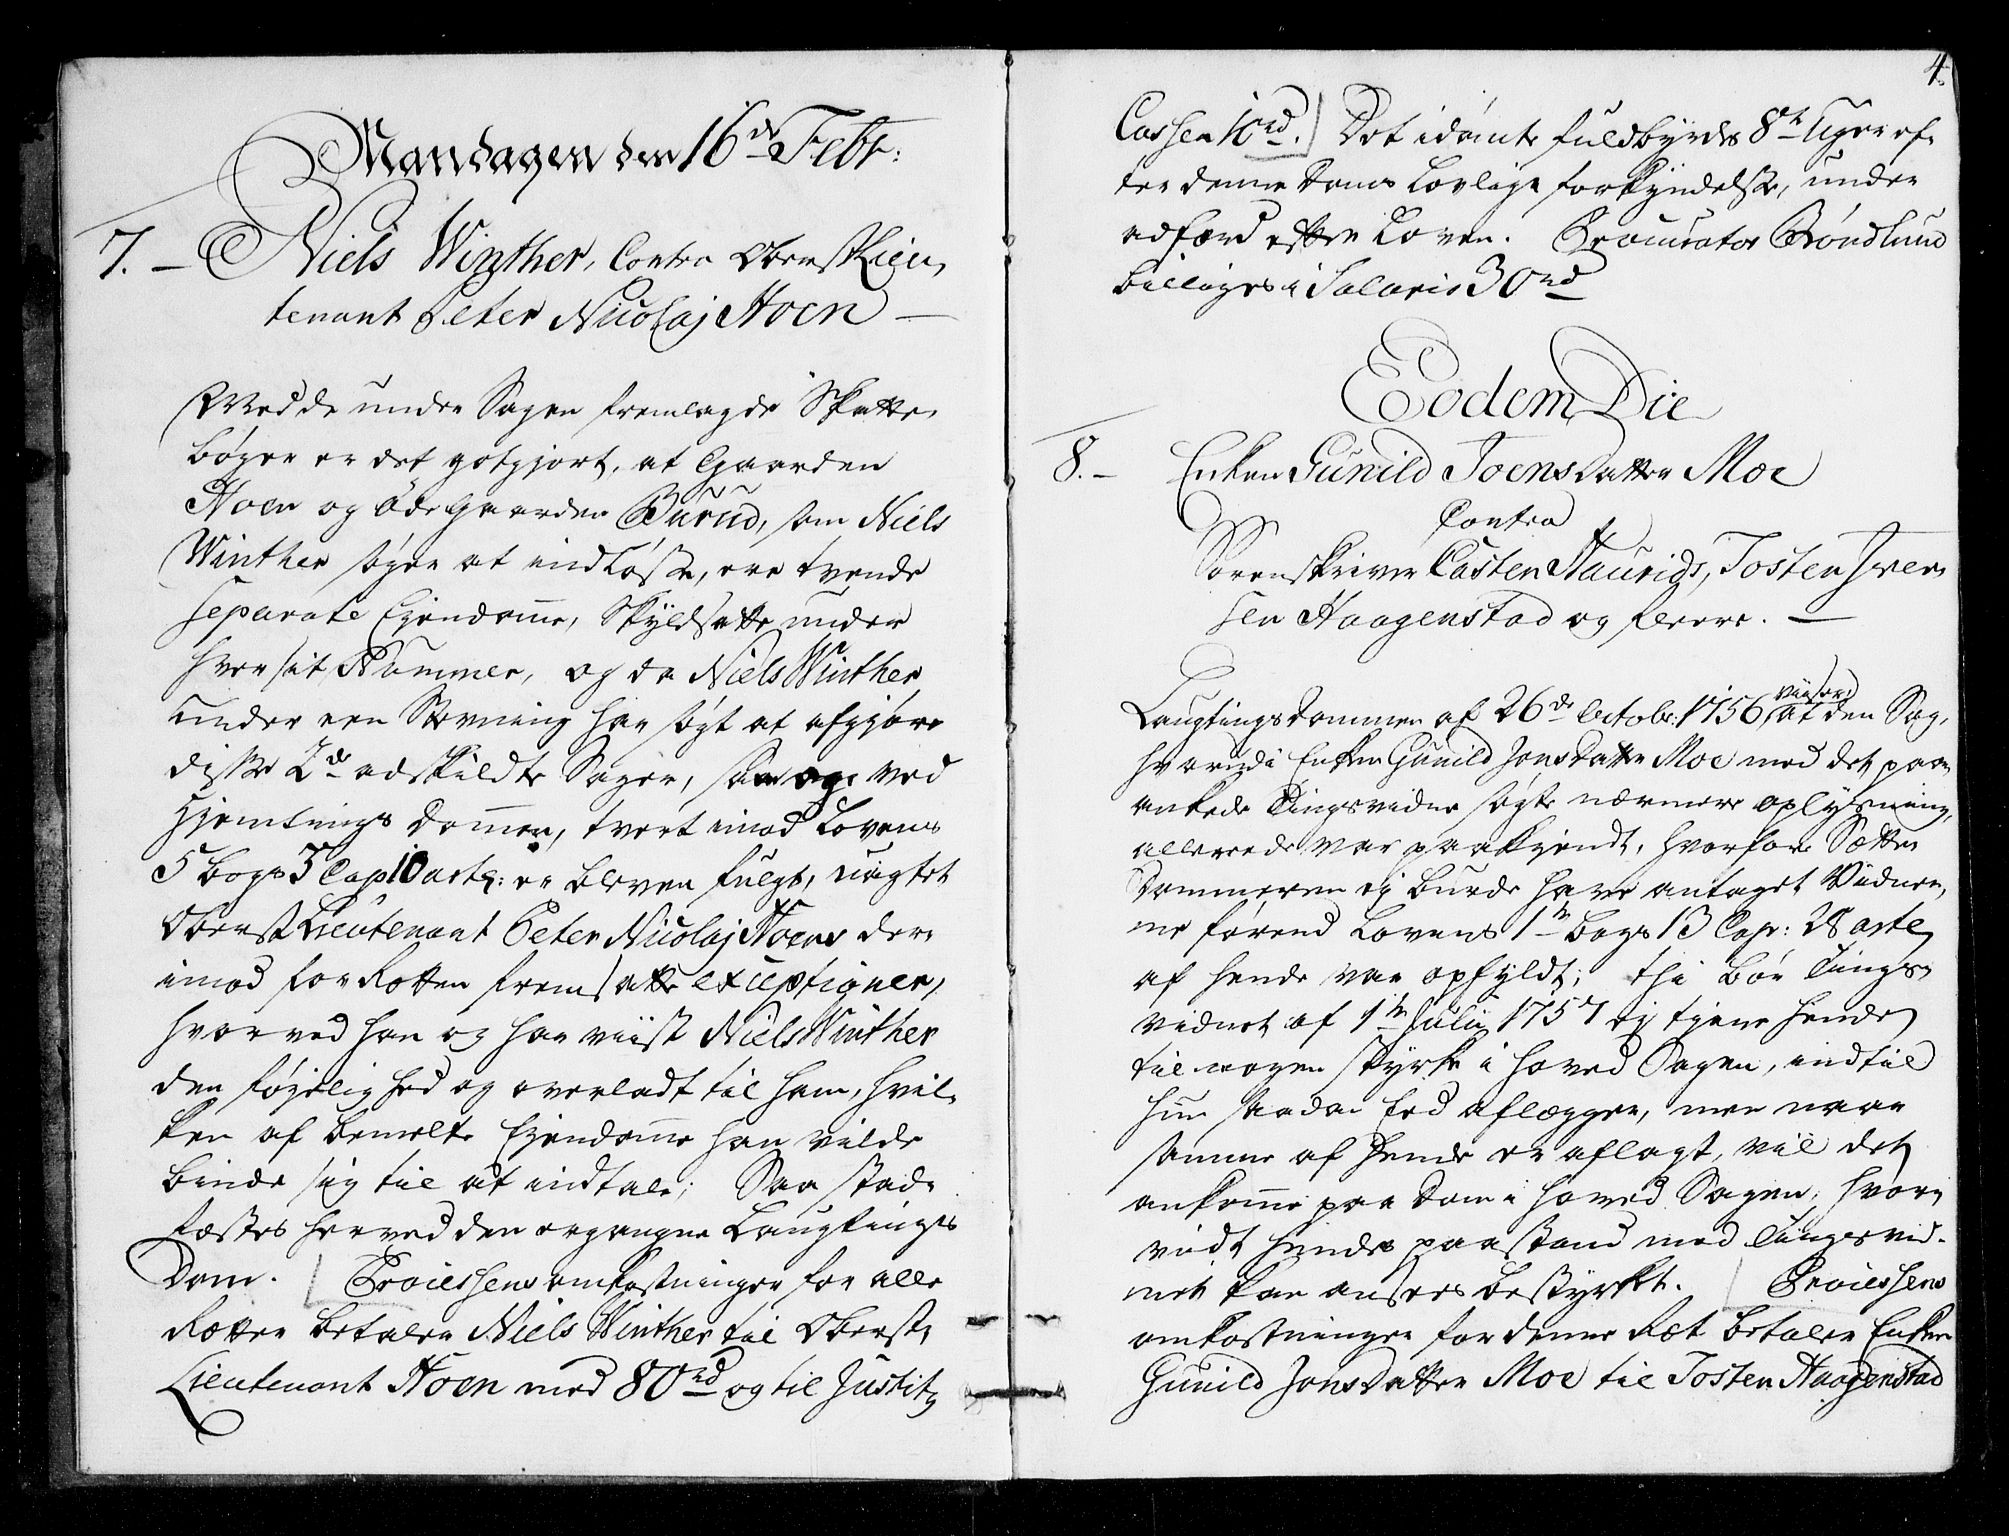 Mandagen den 16de Febr:
7. – Niels Winther, Contra Oberst Lieu-
tenant Peter Nicolaj Hoen –
Med de under Sagen fremlagde Skatte-
bøger er det gotgjort, at Gaarden
Hoen og ødegaarden Burud, som Niels
Winther søger at indløsse, ere tvende
separate Ejendomme, Skyldsatte under
hver sit Nummer, og da Niels Winther
under een Stevning har søgt at afgjøre
disse 2de adskildte Sager, saa og ved
Hjemtings Dommen, tvert imod Lovens
5 bogs 3 Cap 10 art: er bleven fulgt, uagtet
Oberst Lieutenant Peter Nicolaj Hoens der-
imod for Retten fremsatte exceptioner,
hvorved han og har viist Niels Winther
den føjelighed og overladt til ham, hvil-
ken af bemelte Ejendomme han vilde
binde sig til at indtale; Saa stad-
fæstes herved den ergangne Laugtings
Dom. Processens omkostninger for alle
Retter betaler Niels Winther til Oberst-
Lieutenant Hoen med 80rd og til Justitz
4.
Cassen 10rd. Det idømte fuldbyrdes 8te Uger ef-
ter denne Doms Lovlige forkyndelse, under
adfærd efter Loven. Procurator Brøndlund
billiges i Salario 30rd
Eodem Die
8. – Enken Gunild Joens Datter Moe
Contra
Sorenskriver Casten Haurids, Tosten Iver-
sen Haagenstad og fleere. –
Laugtings Dommen af 26de Octobr: 1756 viiser at den Sag,
hvorudi Enken Gunild Jons Datter Moe med det paa-
ankede Tingsvidne søgte nærmere oplysning,
allereede var paakjendt, hvorfore Sætte-
Dommeren ej burde have antaget Vidner-
ne førend Lovens 1te bogs 13 Cap: 28 arte
af hende var opfyldt; thi bør Tings-
vidnet af 1te Julij 1757 ej tjene hende
til nogen styrke i hoved Sagen, indtil
hun saadan Eed aflegger, men naar
samme af hende er aflagt, vil det
ankomme paa Dom i hoved Sagen, hvor-
vidt hendes paastand med Tingsvid-
net kan ansees bestyrket. Processens
omkostninger for denne Ret betaler Enken
Gunild Jons Datter Moe til Tosten Haagenstad